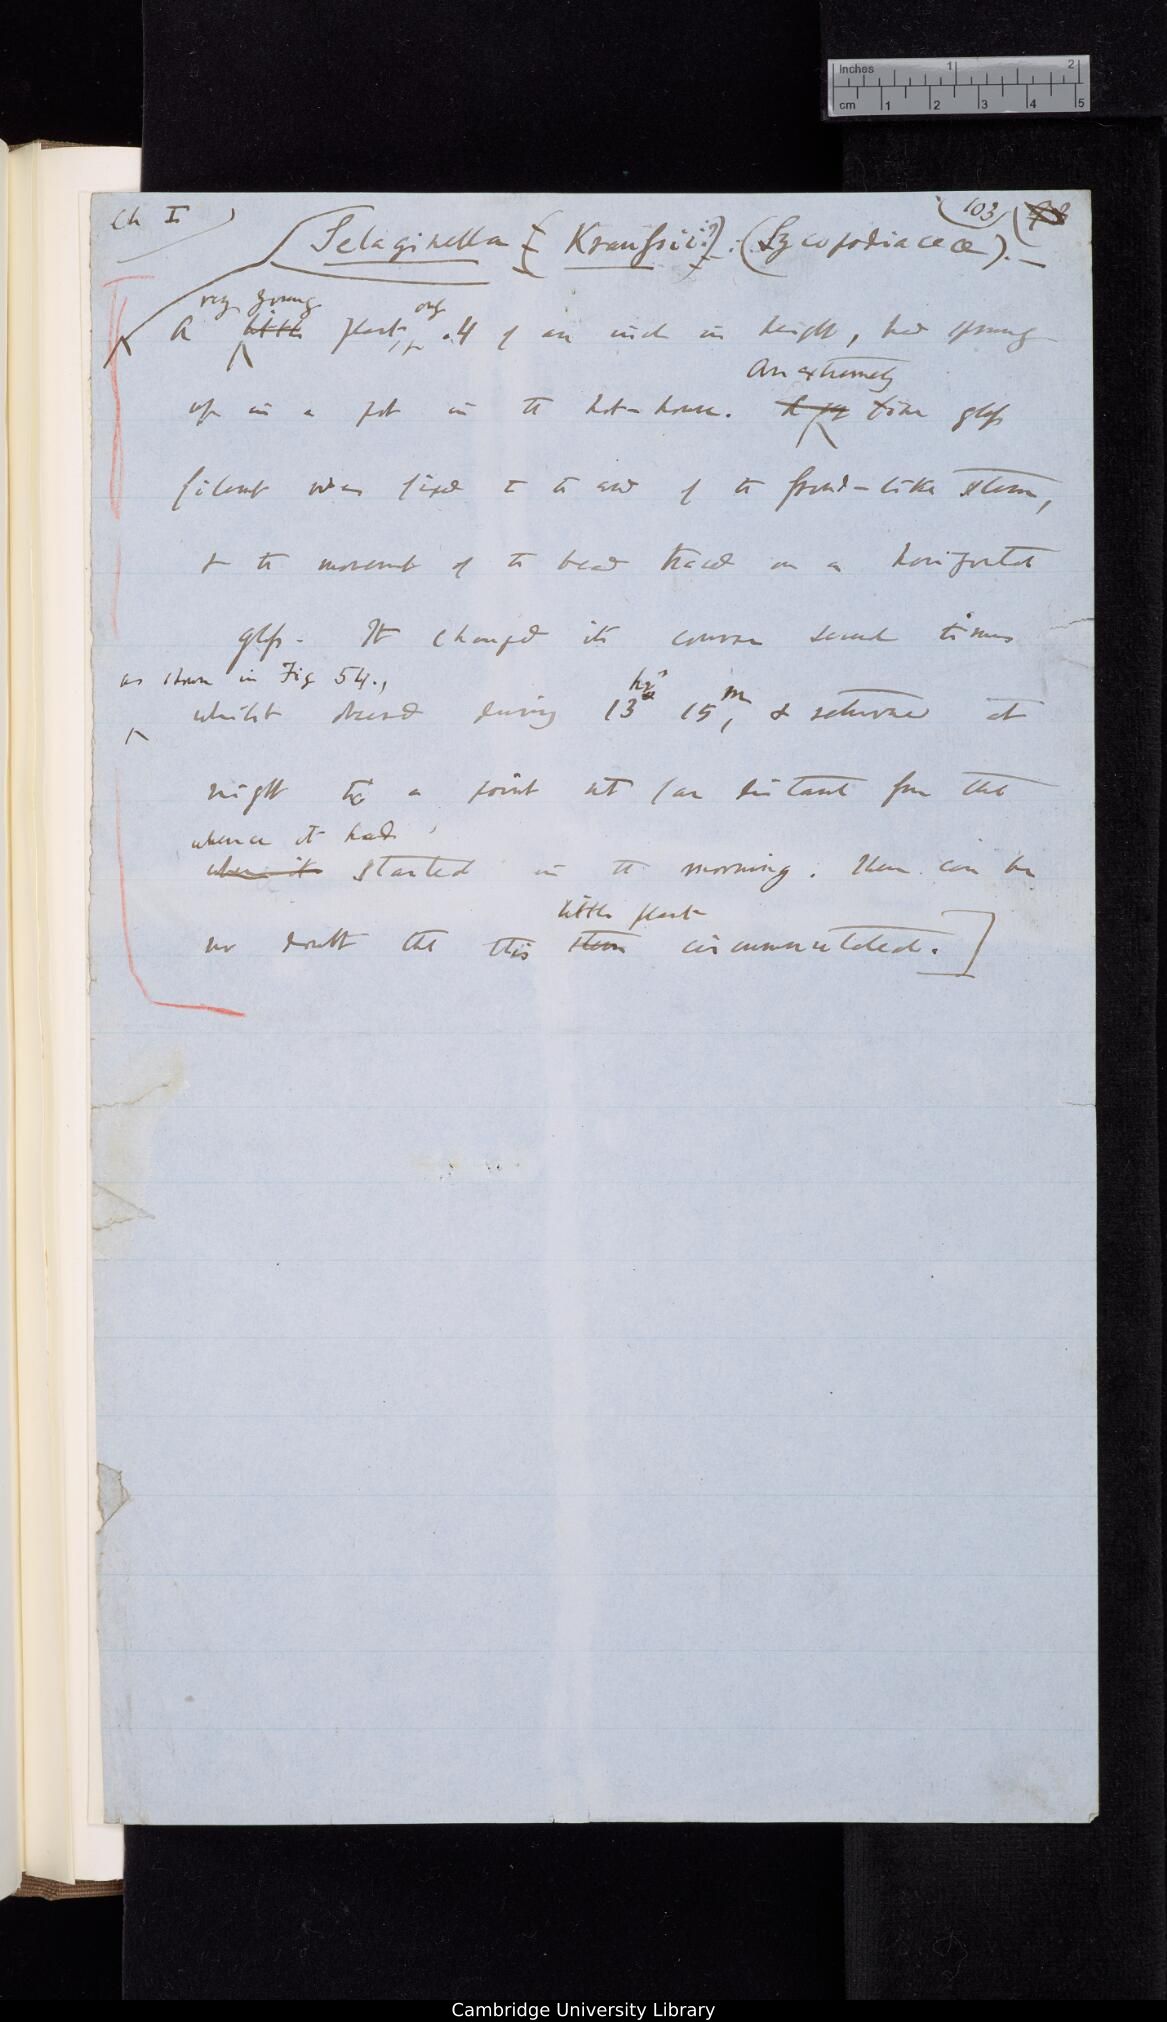 Inches 1 2
cm 1 2 3 4 5
Ch I
103
Selaginella [Kraussii?]. (Lycopodiaceæ).—
very young only
A little plant, .4 of an inch in height, had sprung
An extremely
up in a pot in the hot-house. fine glass
filament was fixed to the end of the frond-like stem,
& the movement of the bead traced on a horizontal
glass. It changed its course several times
as shown in Fig 54.,
hrs m
whilst observed during 13 15, & returned at
night to a point not far distant from that
whence it had
when it started in the morning. There can be
little plant
no doubt that this stem circumnutated.]
Cambridge University Library